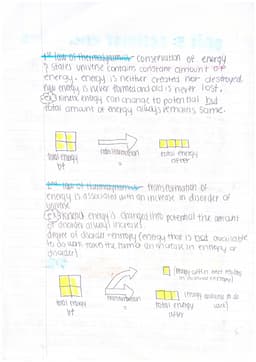 1st law of thermodynamics - conservation of energy
states universe contains constant amount of
energy. energy is neither created nor destroyed.
new energy is never formed and old is never lost.
ex) kinetic energy can change to potential but
total amount of energy always remains same.
total energy
bf
transformation
total energy
after
2nd law of thermodynamics - transformation of
energy is associated with an increase in disorder of
universe
ex) kinetic energy is changed into potential the amount
of disorder always increase.
degree of disorder = entropy (energy that is not available
to do work takes the form of an increase in entropy or
disorder)
total energy
bf
transformation
total energy
after
(energy available to do
work)